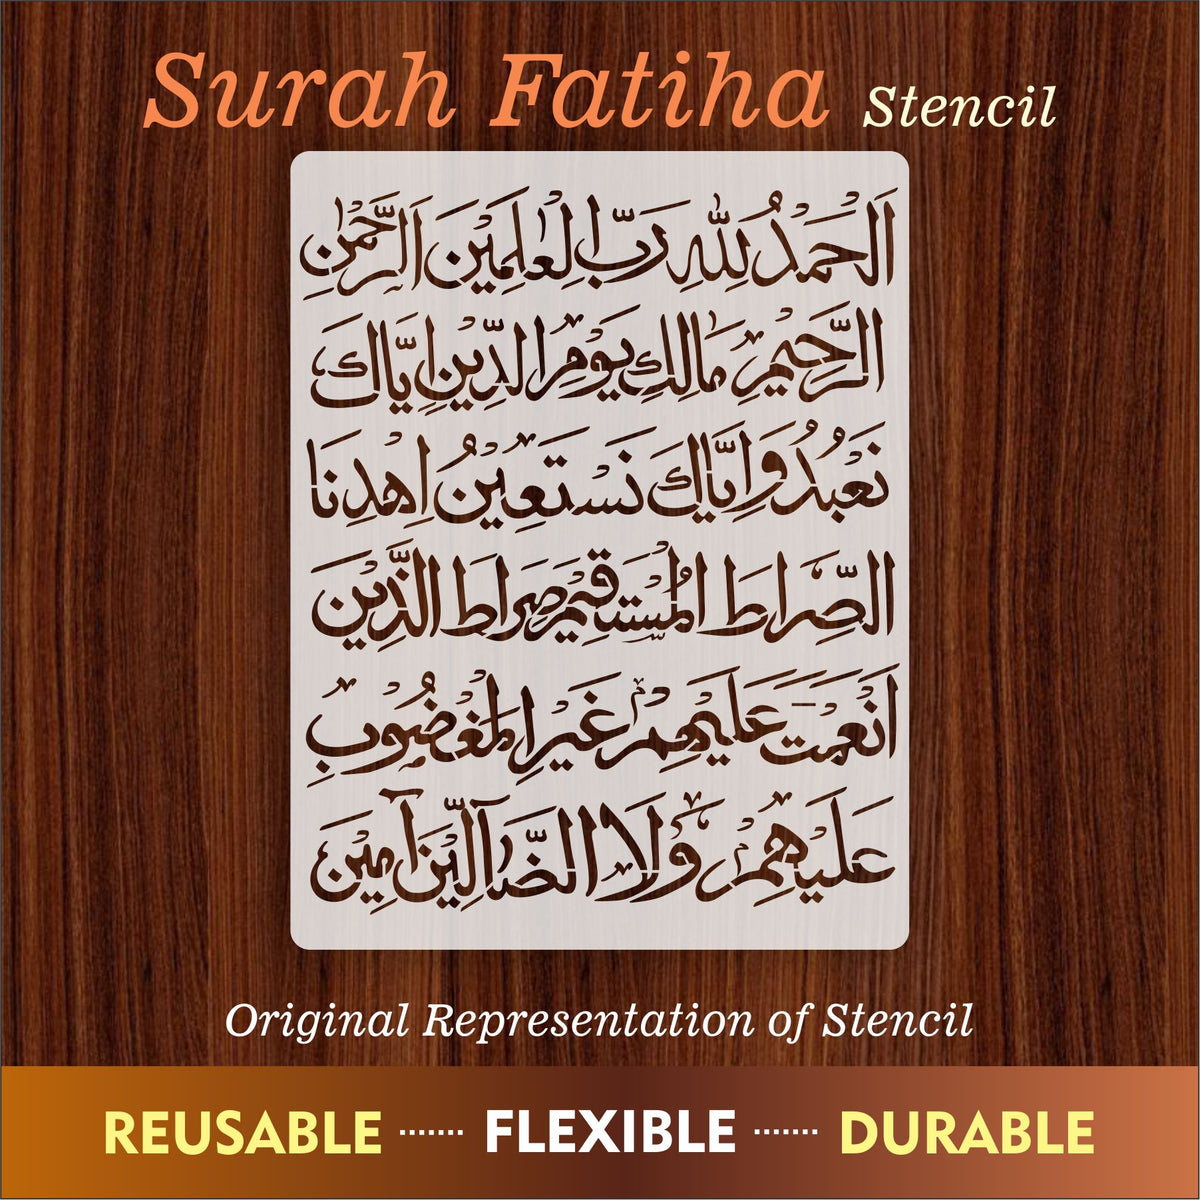 Surah Fatiha Stencil
اَلْحَمْدُ لِلّٰهِ رَبِّ الْعٰلَمِيْنَ اَلرَّحْمٰنِ
الرَّحِيْمِ مَالِكِ يَوْمِ الدِّيْنِ اِيَّاكَ
نَعْبُدُ وَاِيَّاكَ نَسْتَعِيْنُ اِهْدِنَا
الصِّرَاطَ الْمُسْتَقِيْمَ صِرَاطَ الَّذِيْنَ
اَنْعَمْتَ عَلَيْهِمْ غَيْرِ الْمَغْضُوْبِ
عَلَيْهِمْ وَلَا الضَّآلِّيْنَ آمِيْنَ
Original Representation of Stencil
REUSABLE ....... FLEXIBLE ....... DURABLE